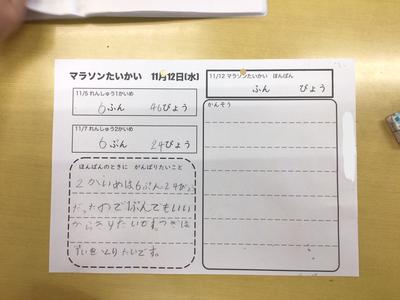 マラソンたいかい 11月12日(水)
11/5 れんしゅう1かいめ
6ぷん 46びょう
11/7 れんしゅう2かいめ
6ぷん 24びょう
ほんばんのときに がんばりたいこと
2かいめは6ぷん24びょう
だったので
でもいい
から
とりたいです。
11/12 マラソンたいかい ほんばん
ふん びょう
かんそう